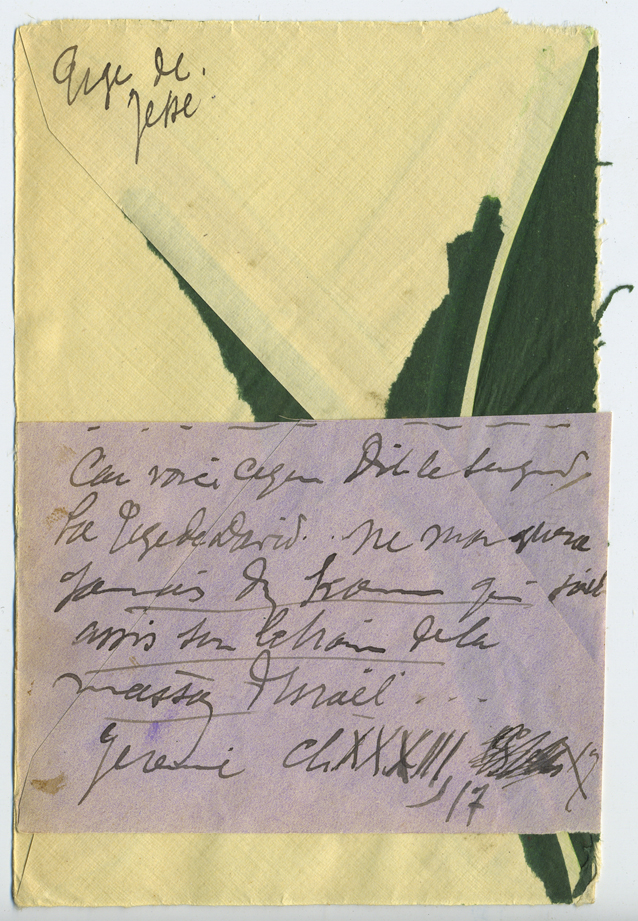 Tige de.
Jesse.
Car voici ce que Dit le Seigneur,
La Tige de David.. ne manquera
Jamais D'homme qui soit
assis sur le trône de la
maison d'Israël ...
Jeremie ch XXXIII
17